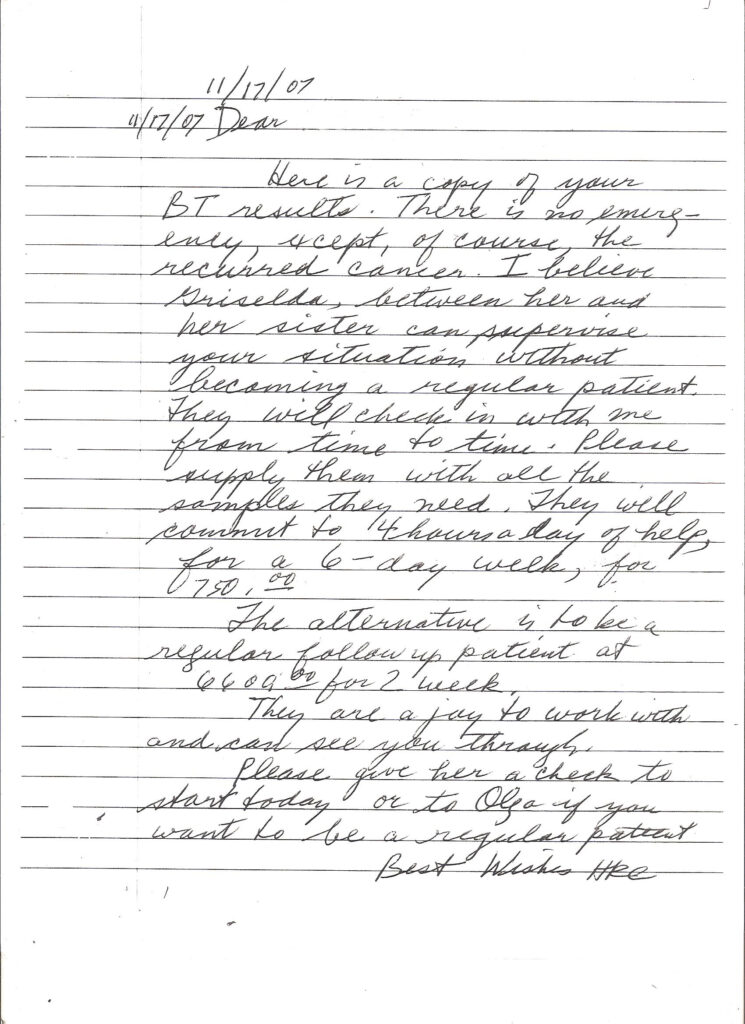 11/17/07
11/17/07 Dear
Here is a copy of your
BT results. There is no emerg-
ency, except, of course, the
recurred cancer. I believe
Griselda, between her and
her sister can supervise
your situation without
becoming a regular patient.
They will check in with me
from time to time. Please
supply them with all the
samples they need. They will
commit to 4 hours a day of help,
for a 6-day week, for
750.00
The alternative is to be a
regular follow up patient at
for 2 week.
They are a joy to work with
and can see you through.
Please give her a check to
start today or to Olga if you
want to be a regular patient
Best Wishes HRC